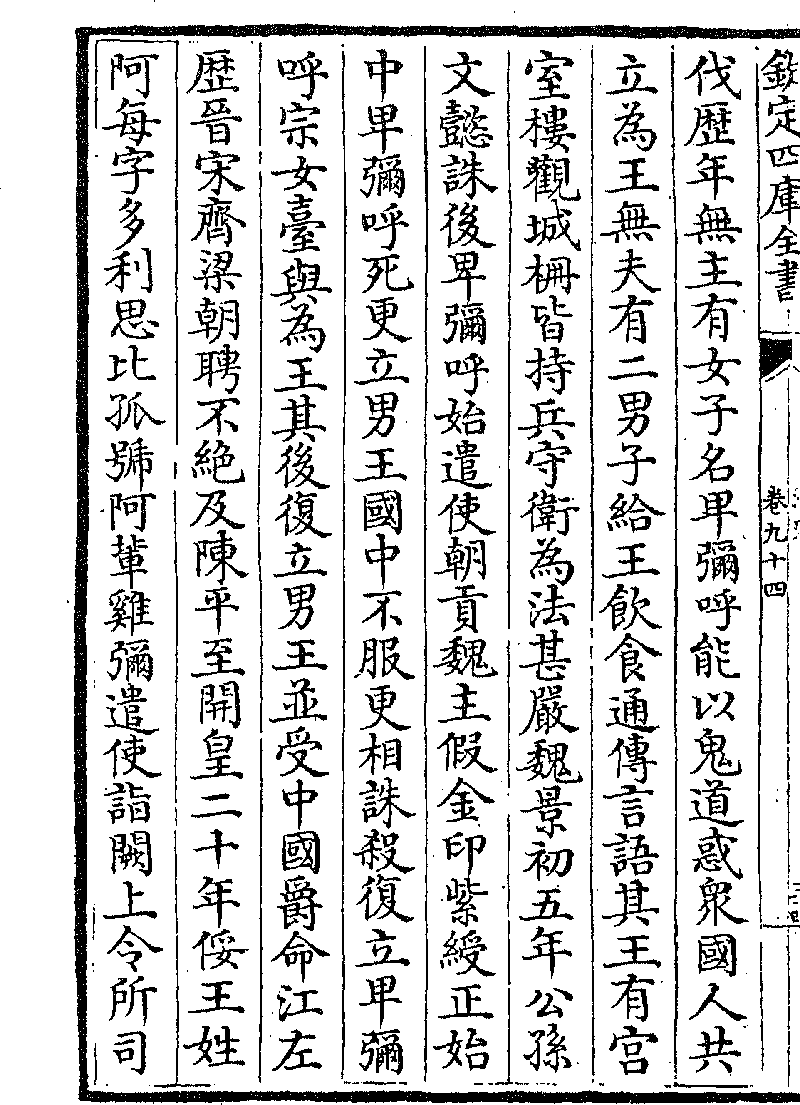 欽定四庫全書
卷九十四
伐歴年無主有女子名卑彌呼能以鬼道惑衆國人共
立為王無夫有二男子給王飲食通傳言語其王有宫
室樓觀城柵皆持兵守衛為法甚嚴魏景初五年公孫
文懿誅後卑彌呼始遣使朝貢魏主假金印紫綬正始
中卑彌呼死更立男王國中不服更相誅殺復立卑彌
呼宗女臺與為王其後復立男王並受中國爵命江左
歴晉宋齊梁朝聘不絶及陳平至開皇二十年倭王姓
阿每字多利思比孤號阿輩雞彌遣使詣闕上令所司